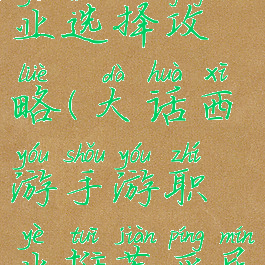 业选择攻
lüè dà huà xī
略(大话西
yóu shǒu yóu zhí
游手游职
yè tuī jiàn píng mín